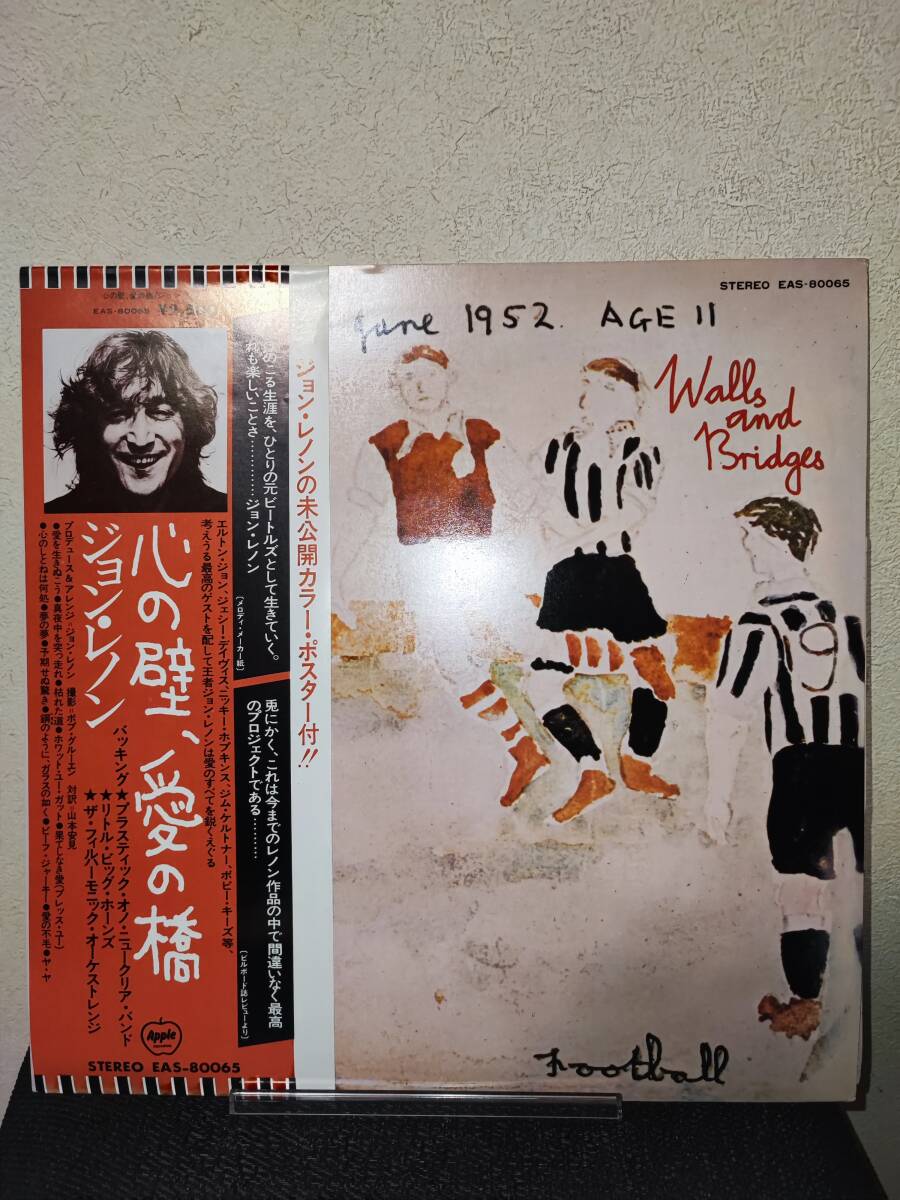 心の壁、愛の橋
EAS-80065 ¥2,500
心の壁、愛の橋
ジョン・レノン
バッキング★プラスティック・オノ・ニュークリア・バンド
★リトル・ビッグ・ホーンズ
★ザ・フィルハーモニック・オーケストレンジ
プロデュース&アレンジ=ジョン・レノン 撮影=ボブ・グルーエン 対訳=山本安見
●愛を生きぬこう●真夜中を突っ走れ●枯れた道●ホワット・ユー・ガット●果てしなき愛(ブレッス・ユー)
●心のしとねは何処●夢の夢●予期せぬ驚き●鋼のように、ガラスの如く●ビーフ・ジャーキー●愛の不毛●ヤ・ヤ
エルトン・ジョン、ジェシー・デイヴィス、ニッキー・ホプキンス、ジム・ケルトナー、ボビー・キーズ等、
考えうる最高のゲストを配して王者ジョン・レノンは愛のすべてを鋭くえぐる
のこる生涯を、ひとりの元ビートルズとして生きていく。
れも楽しいことさ…………ジョン・レノン
(メロディ・メーカー紙)
兎にかく、これは今までのレノン作品の中で間違いなく最高
のプロジェクトである………
(ビルボード誌レビューより)
ジョン・レノンの未公開カラー・ポスター付!!
Apple
STEREO EAS-80065
STEREO EAS-80065
June 1952. AGE 11
Walls
and
Bridges
9
Football